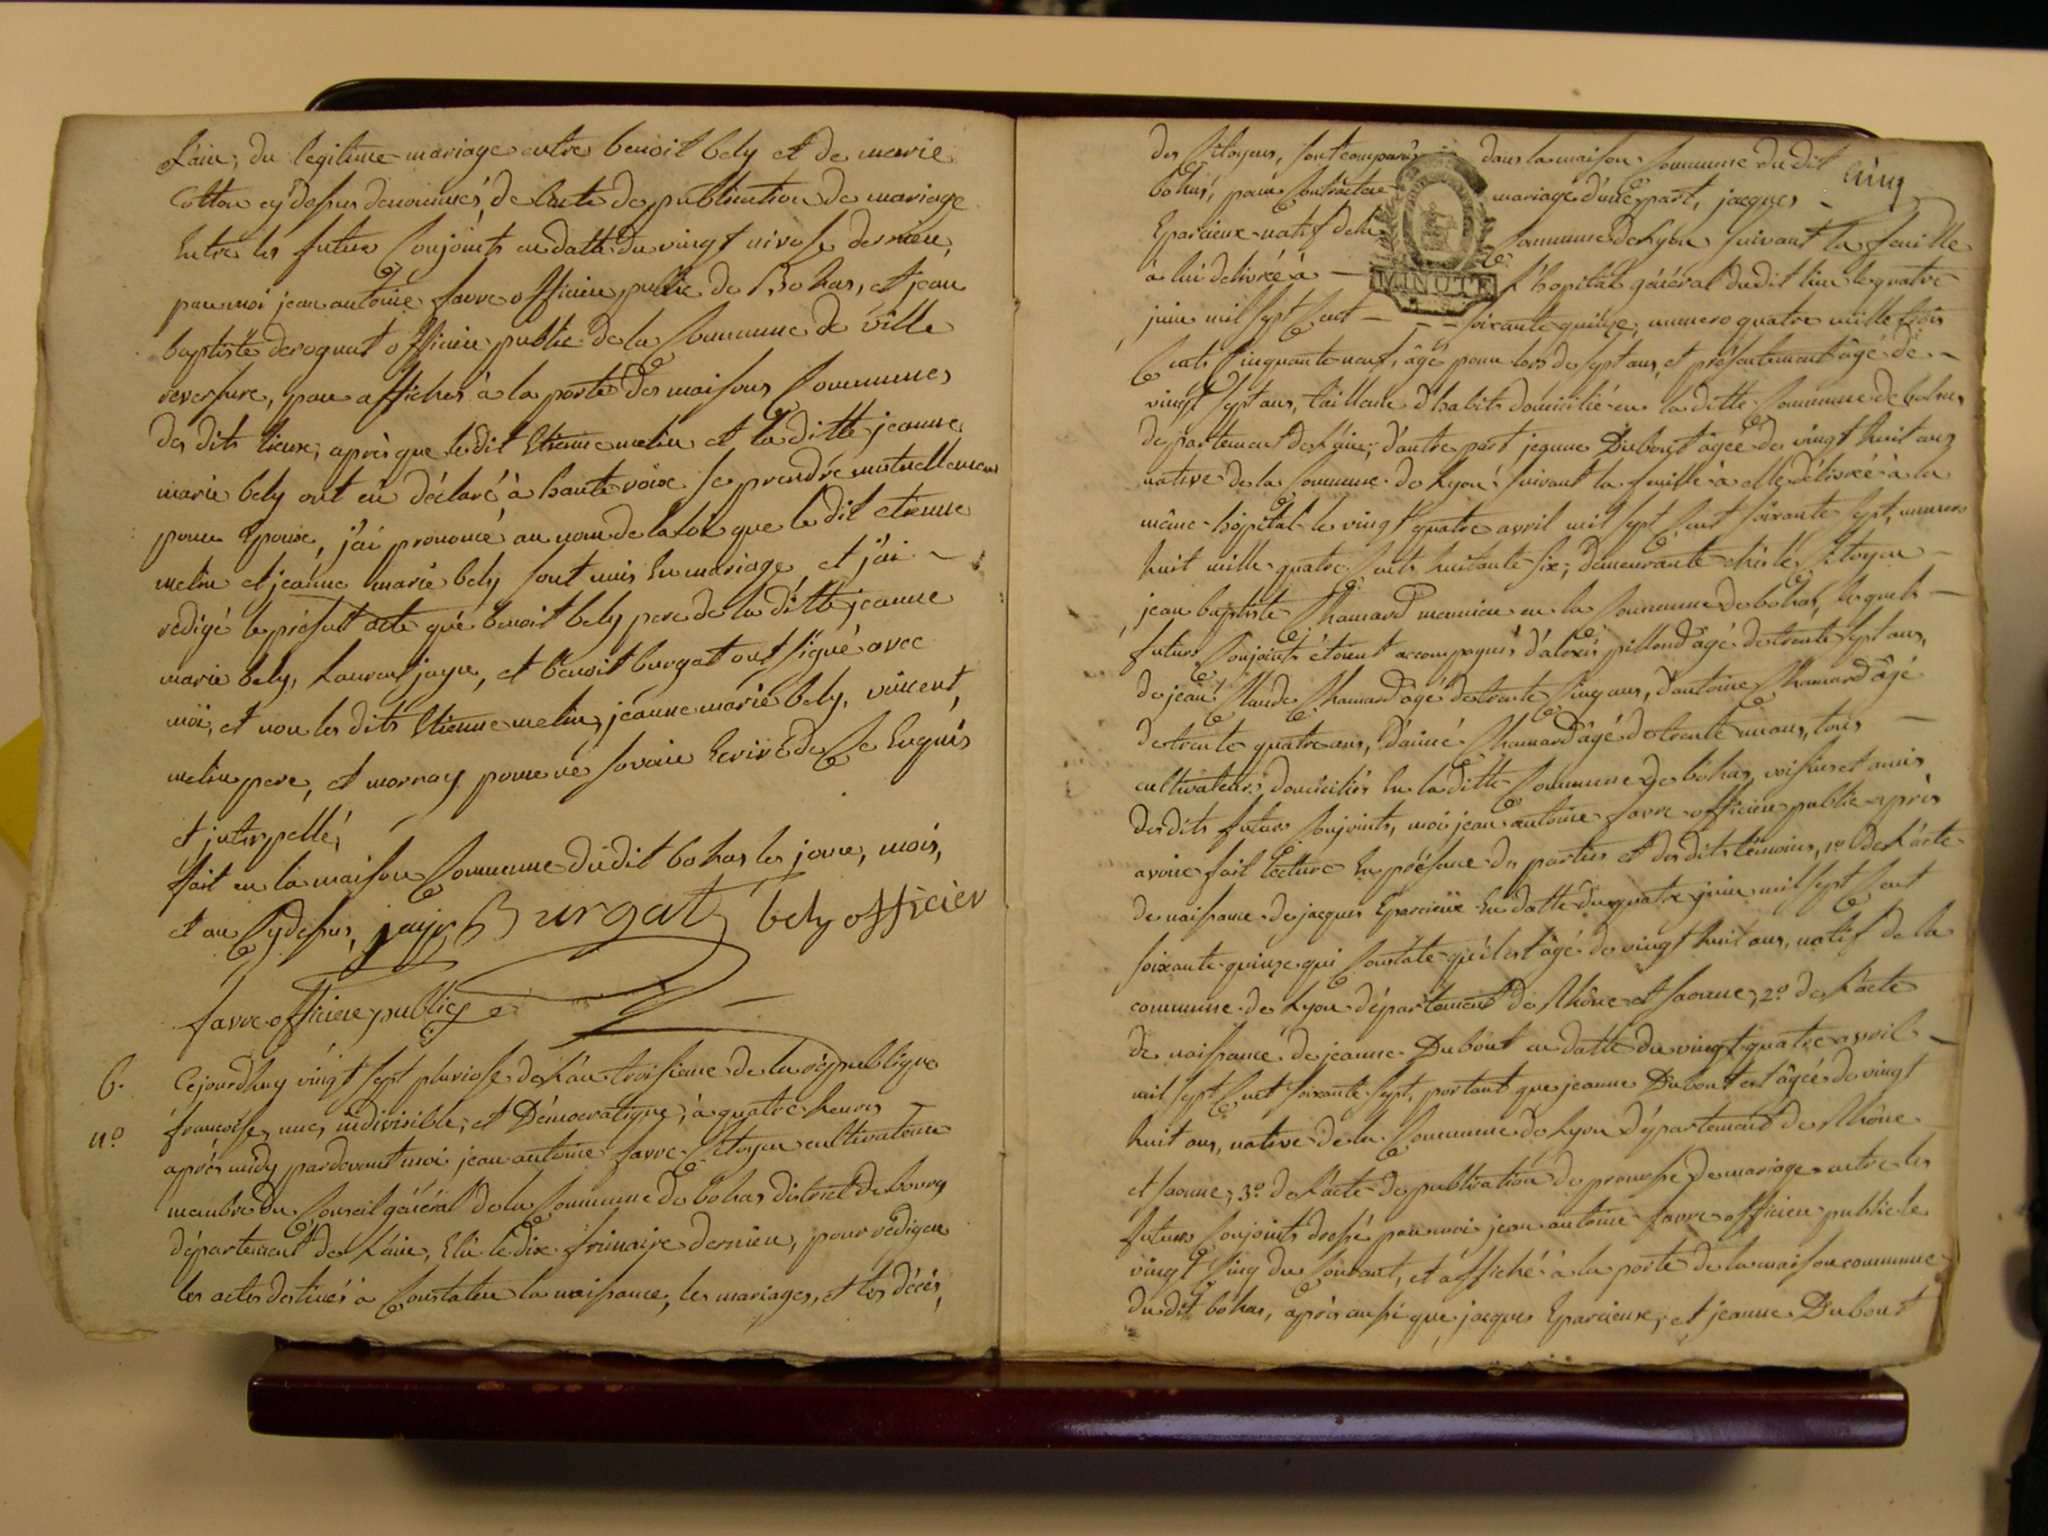 L'ain, du legitime mariage entre benoit bely et de marie
Cotton cy dessus denommés, de l'acte de publication de mariage
Entre les futurs Conjoints en datte du vingt nivose dernier,
par moi jean antoine favre officier public de Bohas, et jean
baptiste deroguat officier public de la Commune de ville
reversure, par affiches à la porte des maisons Communes
des dits lieux, après que ledit Etienne melin et la ditte jeanne
marie bely ont eû déclaré à haute voix se prendre mutuellement
pour Epoux, j'ai prononcé au nom de la loi que le dit etienne
melin et jeanne marie bely sont unis En mariage, et j'ai
redigé le présent acte que benoit bely pere de la ditte jeanne
marie bely, Laurent jayr, et benoit burgat ont signé avec
moi, et non les dits Etienne melin, jeanne marie bely, vincent,
melin pere, et mornay pour ne savoir Ecrire de Ce Enquis
et interpellé,
fait en la maison Commune du dit bohas les jour, mois,
et an Cy dessus, jayr Burgat bely officier
favre officier public
6. Cejourdhuy vingt sept pluviose de L'an troisieme de la république
françoise, une, indivisible, et Démocratique, à quatre heures
n.º après midy pardevant moi jean antoine favre Citoyen cultivateur
membre du Conseil général de la Commune de bohas district de bourg
département de L'ain, Elû le dix frimaire dernier, pour rédiger
les actes destinés à Constater la naissance, les mariages, et les décès,
des Citoyens, sont comparus dans la maison Commune du dit Cinq
bohas, pour Contracter mariage d'une part, jacques
Eparcieux natif de la Commune de Lyon suivant la feuille
à lui delivrée à l'hopital général du dit lieu le quatre
MINUTE
juin mil sept Cent soixante quinze, numero quatre mille trois
Cents Cinquante neuf, âgé pour lors de sept ans, et présentement âgé de
vingt sept ans, tailleur d'habits domicilié en la ditte Commune de bohas
département de L'ain; d'autre part jeanne Dubout âgée de vingt huit ans
native de la Commune de Lyon suivant la feuille à elle délivrée à la
même hôpital le vingt quatre avril mil sept Cent soixante sept, numero
huit mille quatre Cents huitante six; demeurante chès le Citoyen
jean baptiste Chanard meunier en la Commune de bohas, lesquels
futurs Conjoints étoient accompagnés d'alexis pillond âgé de trente sept ans,
de jean Claude Chanard âgé de trente Cinq ans, d'antoine Chanard âgé
de trente quatre ans, d'aimé Chanard âgé de trente un ans, tous
cultivateurs domiciliés En la ditte Commune de bohas, voisins et amis
des dits futurs Conjoints, moi jean antoine favre officier public après
avoir fait lecture En présence des parties et des dits témoins, 1º de L'acte
de naissance de jacques Eparcieux En datte du quatre juin mil sept Cent
soixante quinze qui Constate qu'il est âgé de vingt huit ans, natif de la
commune de Lyon département de Rhône et saonne; 2º de L'acte
de naissance de jeanne Dubout en datte du vingt quatre avril
mil sept Cent soixante sept, portant que jeanne Dubout est âgée de vingt
huit ans, native de la Commune de Lyon département de Rhône
et saonne; 3º de L'acte de publication de promesse de mariage entre les
futurs Conjoints dressé par moi jean antoine favre officier public le
vingt Cinq du Courant, et affiché à la porte de la maison commune
du dit bohas, après aussi que jacques Eparcieux, et jeanne Dubout